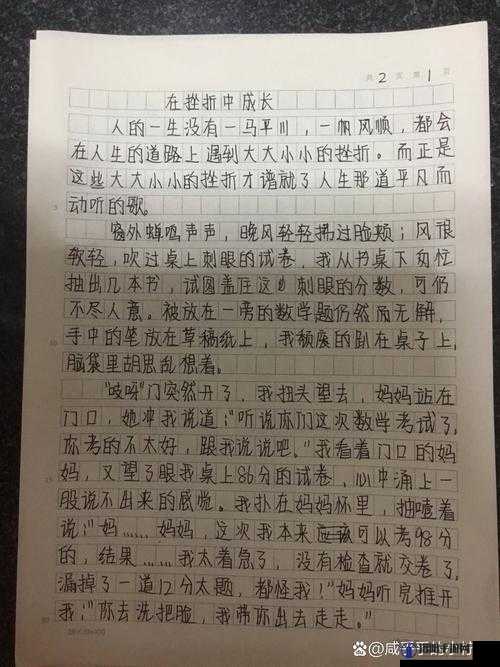 共 2 页 第 1 页
在挫折中成长
人的一生没有一马平川，一帆风顺，都会
在人生的道路上遇到大大小小的挫折。而正是
这些大大小小的挫折才谱就了人生那道平凡而
动听的歌。
窗外蝉鸣声声，晚风轻轻拂过脸颊；风很
软轻，吹过桌上刺眼的试卷，我从书桌下匆忙
抽出几本书，试图盖住这刺眼的分数，可仍
不尽人意。被放在一旁的数学题仍然而无解，
手中的笔放在草稿纸上，我颓废的趴在桌子上，
脑袋里胡思乱想着。
"吱呀"门突然开了，我扭头望去，妈妈站在
门口，她冲我说道："听说你们这次数学考试了，
你考的不太好，跟我说说吧。"我看着门口的妈
妈，又望了眼我桌上86分的试卷，心中涌上一
股说不出来的感觉。我扑在妈妈怀里，抽噎着
说："妈……妈妈，这次我本来应该可以考98分
的，结果……我太着急了，没有检查就交卷了，
漏掉了一道12分大题，都怪我！"妈妈听完推开
我："你去洗把脸，我带你出去走走。"
5
10
15
20